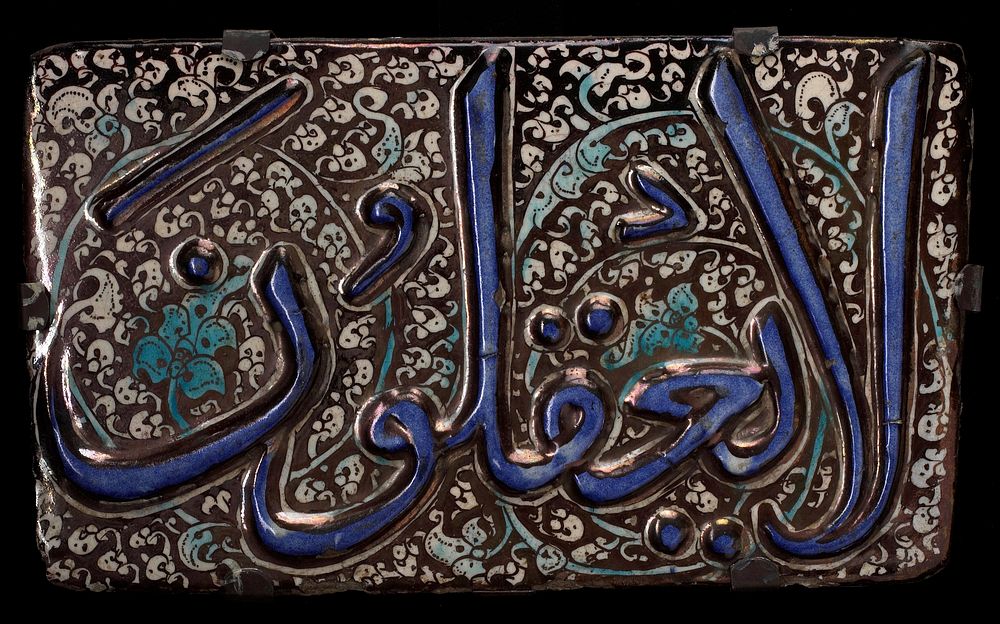 لا يعقلون